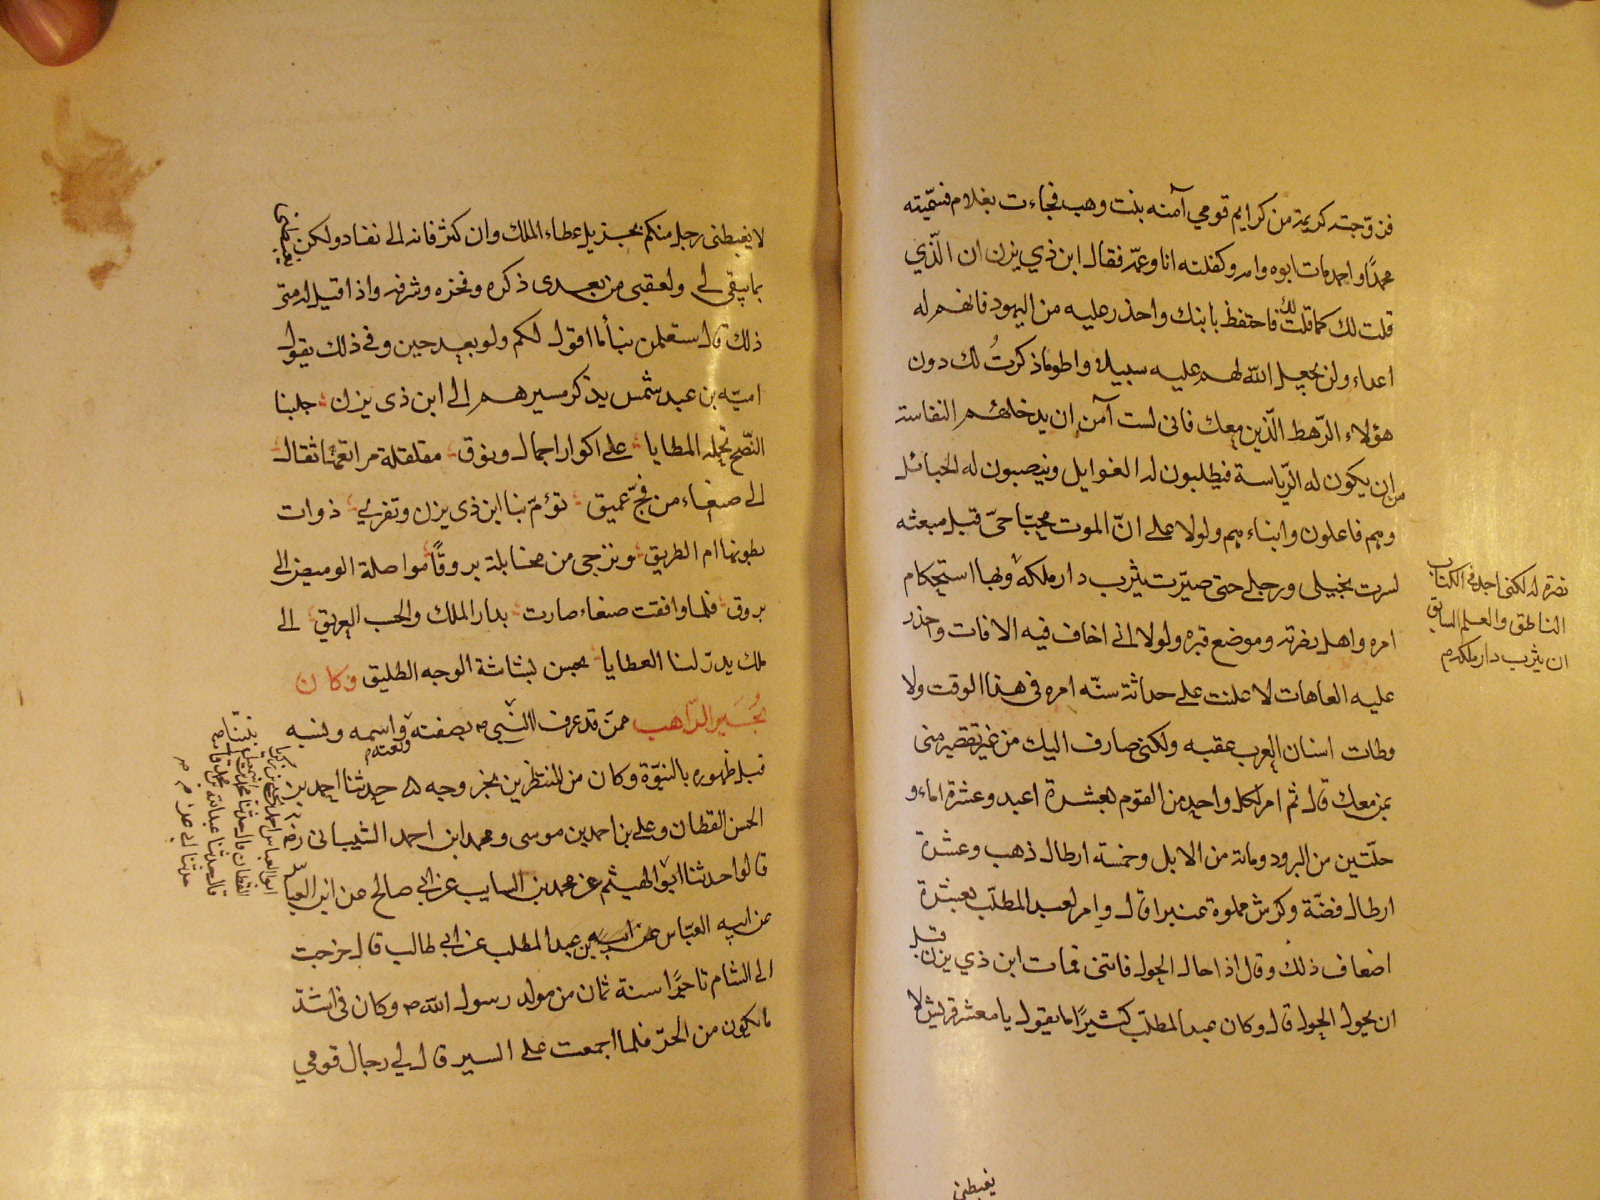 فزوّجته كريمة من كرايم قومي آمنه بنت وهب فجاءت بغلام فسمّيته
محمدًا واحمد مات ابوه وامه وكفلته انا وعمّه فقال ابن ذي يزن ان الّذي
قلت لك كما قلت لك فاحتفظ بابنك واحذر عليه من اليهود فانهم له
اعداء ولن يجعل الله لهم عليه سبيلا واطو ما ذكرتُ لك دون
هؤلاء الرّهط الّذين معك فاني لست آمن ان يدخلهم النفاسة
من ان يكون له الرّياسة فيطلبون له الغوايل وينصبون له الحبائل
وهم فاعلون وابناءهم ولولا علمي انّ الموت مجتاحيّ قبل مبعثه
لسرت بخيلي ورجلي حتى صيّرت يثرب دار ملكه وبها استحكام
امره واهل نصرته وموضع قبره ولولا اني اخاف فيه الافات واحذر
عليه العاهات لاعلنت على حداثة سنّه امره في هذا الوقت ولا
وطات اسنان العرب عقبه ولكنى صارف اليك من غير تقصير مني
بمن معك قال ثم امر لكل واحد من القوم بعشرة اعبد وعشرة اماء و
حلّتين من البرود ومائة من الابل وخمسة ارطال ذهب وعشرة
ارطال فضّة وكرش مملوة عنبرا قال وامر لعبد المطلب بعشرة
اضعاف ذلك وقال اذا حال الحول فاتني فمات ابن ذي يزن قبل
ان يحول الحول قال وكان عبد المطلب كثيرًا ما يقول يا معشر قريش لا
نصرة له لكنى اجد في الكتاب
الناطق والعلم السابق
ان يثرب دار ملكه م
يغبطني
لا يغبطنى رجل منكم بجزيل عطاء الملك وان كثر فانه الى نفاد ولكن يغبطني
بما يبقى لي ولعقبى من بعدى ذكره وفخره وشرفه واذا قيل له متى
ذلك قال ستعلمن نبأ ما اقول لكم ولو بعد حين وفي ذلك يقول
اميّه بن عبد شمس يذكر مسيرهم الى ابن ذى يزن جلبنا
النّصح تحمله المطايا على اكوار اجمال ونوق مقلقلة مراتعها ثقال
الى صنعاء من فجّ عميق تؤمّ بنا ابن ذى يزن وتفري ذوات
بطونها ام الطريق ونزجى من مخايلة بروقًا مواصلة الوميض الى
بروق فلما وافقت صنعاء صارت بدار الملك والحب العريق الى
ملك يدرّ لنا العطايا بحسن بشاشة الوجه الطليق وكان
بُحَيرا الرّاهب ممن قد عرف النّبي ص بصفته واسمه ونسبه
ونعته م
قبل ظهوره بالنبوّة وكان من المنتظرين بخروجه ه حدثنا احمد بن
الحسن القطان وعلي بن احمد بن موسى ومحمد ابن احمد الشيبانى رض
قالوا حدثنا ابو الهيثم عن محمد بن السايب عن ابي صالح عن ابن العباس
عن ابيه العبّاس بن عبد المطلب عن ابي طالب قال خرجت
الى الشام تاجرًا سنة ثمان من مولد رسول الله ص وكان في اشدّ
ما يكون من الحرّ فلما اجمعت على السير قال لي رجال قومي